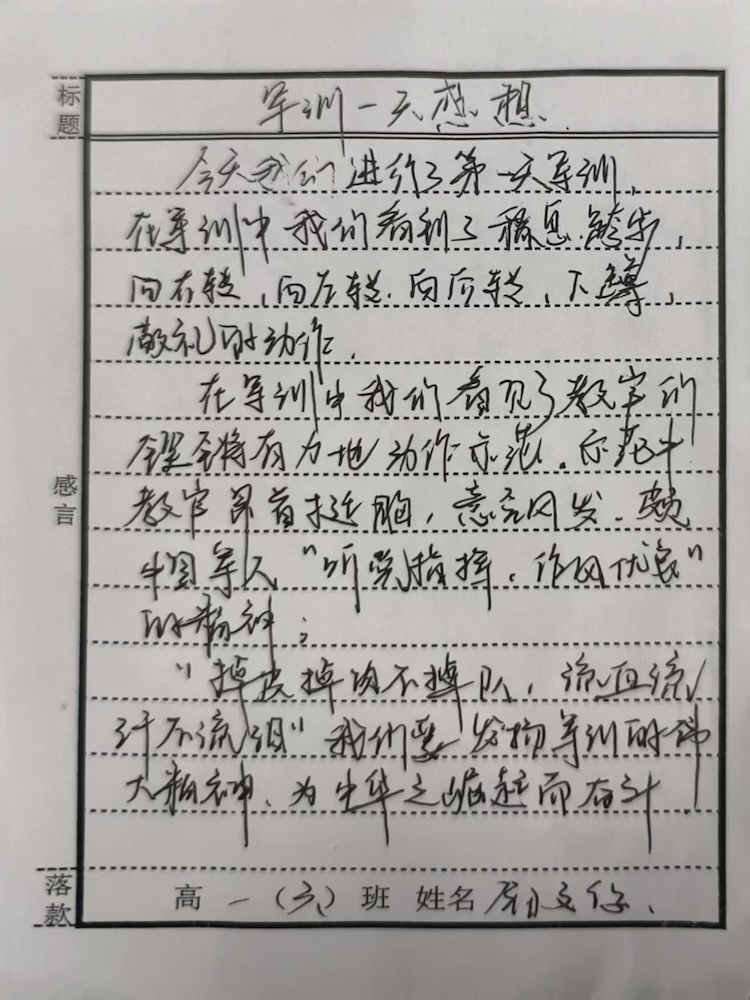 标题
军训一天感想
今天我们进行了第一天军训,
在军训中我们看到了稍息、跨步,
向右转、向左转、向后转、下蹲,
敬礼的动作.
在军训中我们看见了教官们
铿锵有力地动作示范.示范中
教官昂首挺胸,意气风发.
中国军人"听党指挥,作风优良"
的精神;
感言
"掉皮掉肉不掉队,流血流
汗不流泪"我们要发扬军训的伟
大精神、为中华之崛起而奋斗.
落款
高一(六)班 姓名